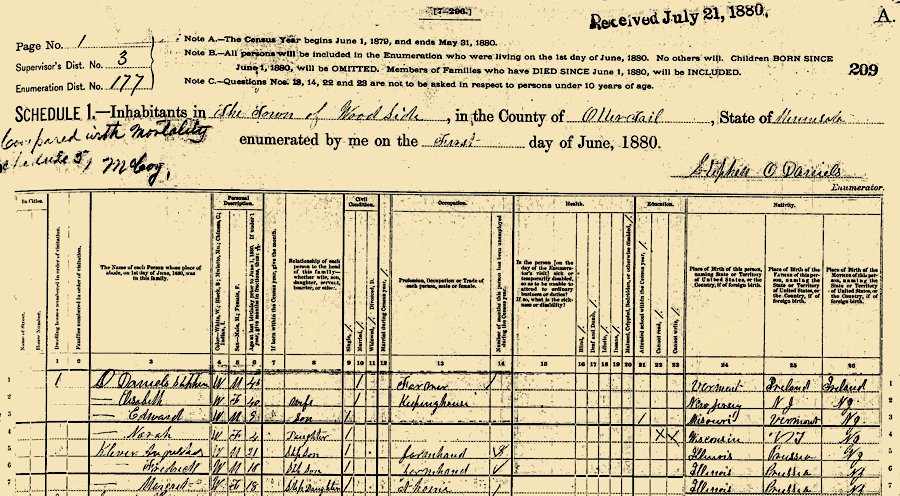 [7-296.]
Received July 21, 1880.
A.
Page No. 1
Supervisor's Dist. No. 3
Enumeration Dist. No. 177
Note A.—The Census Year begins June 1, 1879, and ends May 31, 1880.
Note B.—All persons will be included in the Enumeration who were living on the 1st day of June, 1880. No others will. Children BORN SINCE
June 1, 1880, will be OMITTED. Members of Families who have DIED SINCE June 1, 1880, will be INCLUDED.
Note C.—Questions Nos. 13, 14, 22 and 23 are not to be asked in respect to persons under 10 years of age.
209
SCHEDULE 1.—Inhabitants in The Town of Wood Side, in the County of Otter tail, State of Minnesota
enumerated by me on the First day of June, 1880.
Compared with Mortality
Schedule 5, McCoy,
Stephen O Daniels
Enumerator.
In Cities.
Name of Street.
House Number.
Dwelling houses numbered in order of visitation.
Families numbered in order of visitation.
The Name of each Person whose place of abode, on 1st day of June, 1880, was in this family.
Personal Description.
Color—White, W.; Black, B.; Mulatto, Mu.; Chinese, C.; Indian, I.
Sex—Male, M.; Female, F.
Age at last birthday prior to June 1, 1880. If under 1 year, give months in fractions, thus:
If born within the Census year, give the month.
Relationship of each person to the head of this family—whether wife, son, daughter, servant, boarder, or other.
Civil Condition.
Single,
Married,
Widowed, Divorced, D.
Married during Census year,
Occupation.
Profession, Occupation or Trade of each person, male or female.
Number of months this person has been unemployed during the Census year.
Health.
Is the person [on the day of the Enumerator's visit] sick or temporarily disabled, so as to be unable to attend to ordinary business or duties? If so, what is the sickness or disability?
Blind,
Deaf and Dumb,
Idiotic,
Insane,
Maimed, Crippled, Bedridden, or otherwise disabled,
Education.
Attended school within the Census year,
Cannot read,
Cannot write,
Nativity.
Place of Birth of this person, naming State or Territory of United States, or the Country, if of foreign birth.
Place of Birth of the Father of this person, naming the State or Territory of United States, or the Country, if of foreign birth.
Place of Birth of the Mother of this person, naming the State or Territory of United States, or the Country, if of foreign birth.
1 2 3 4 5 6 7 8 9 10 11 12 13 14 15 16 17 18 19 20 21 22 23 24 25 26
1 1 O Daniels Stephen W M 43 / Farmer Vermont Ireland Ireland
2 — Elisabeth W F 40 wife / Keeping house New Jersey N J N J
3 — Edward W M 9 Son / 1 Missouri Vermont N J
4 — Norah W F 4 Daughter / X X Wisconsin N J
5 Klever W M 21 Step son / farmhand Illinois Prussia N J
6 Frederick W M 18 Step son farmhand Illinois Prussia N J
7 — Margaret W F 18 Step Daughter / At home Illinois Prussia N J